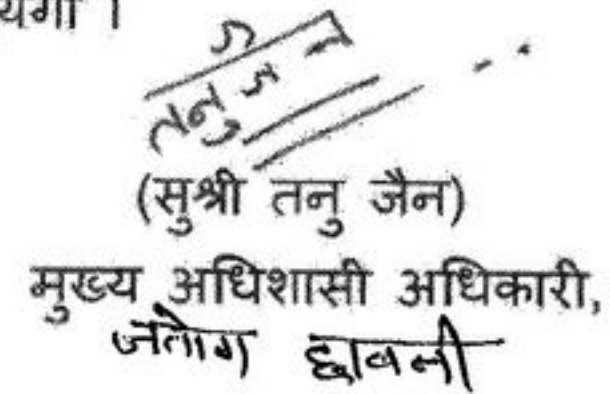 यगा ।
तनु जैन
(सुश्री तनु जैन)
मुख्य अधिशासी अधिकारी,
जतोग छावनी